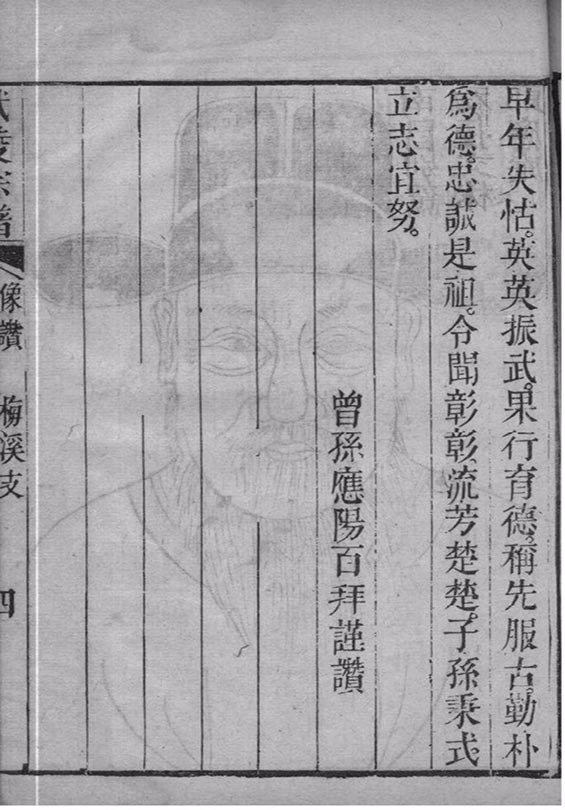 早年失怙。英英振武。果行育德。稱先服古。勤朴
為德。忠誠是祖。令聞彰彰。流芳楚楚。子孫秉式。
立志宜努。
曾孫應陽百拜謹讚
像讚 梅溪支 四